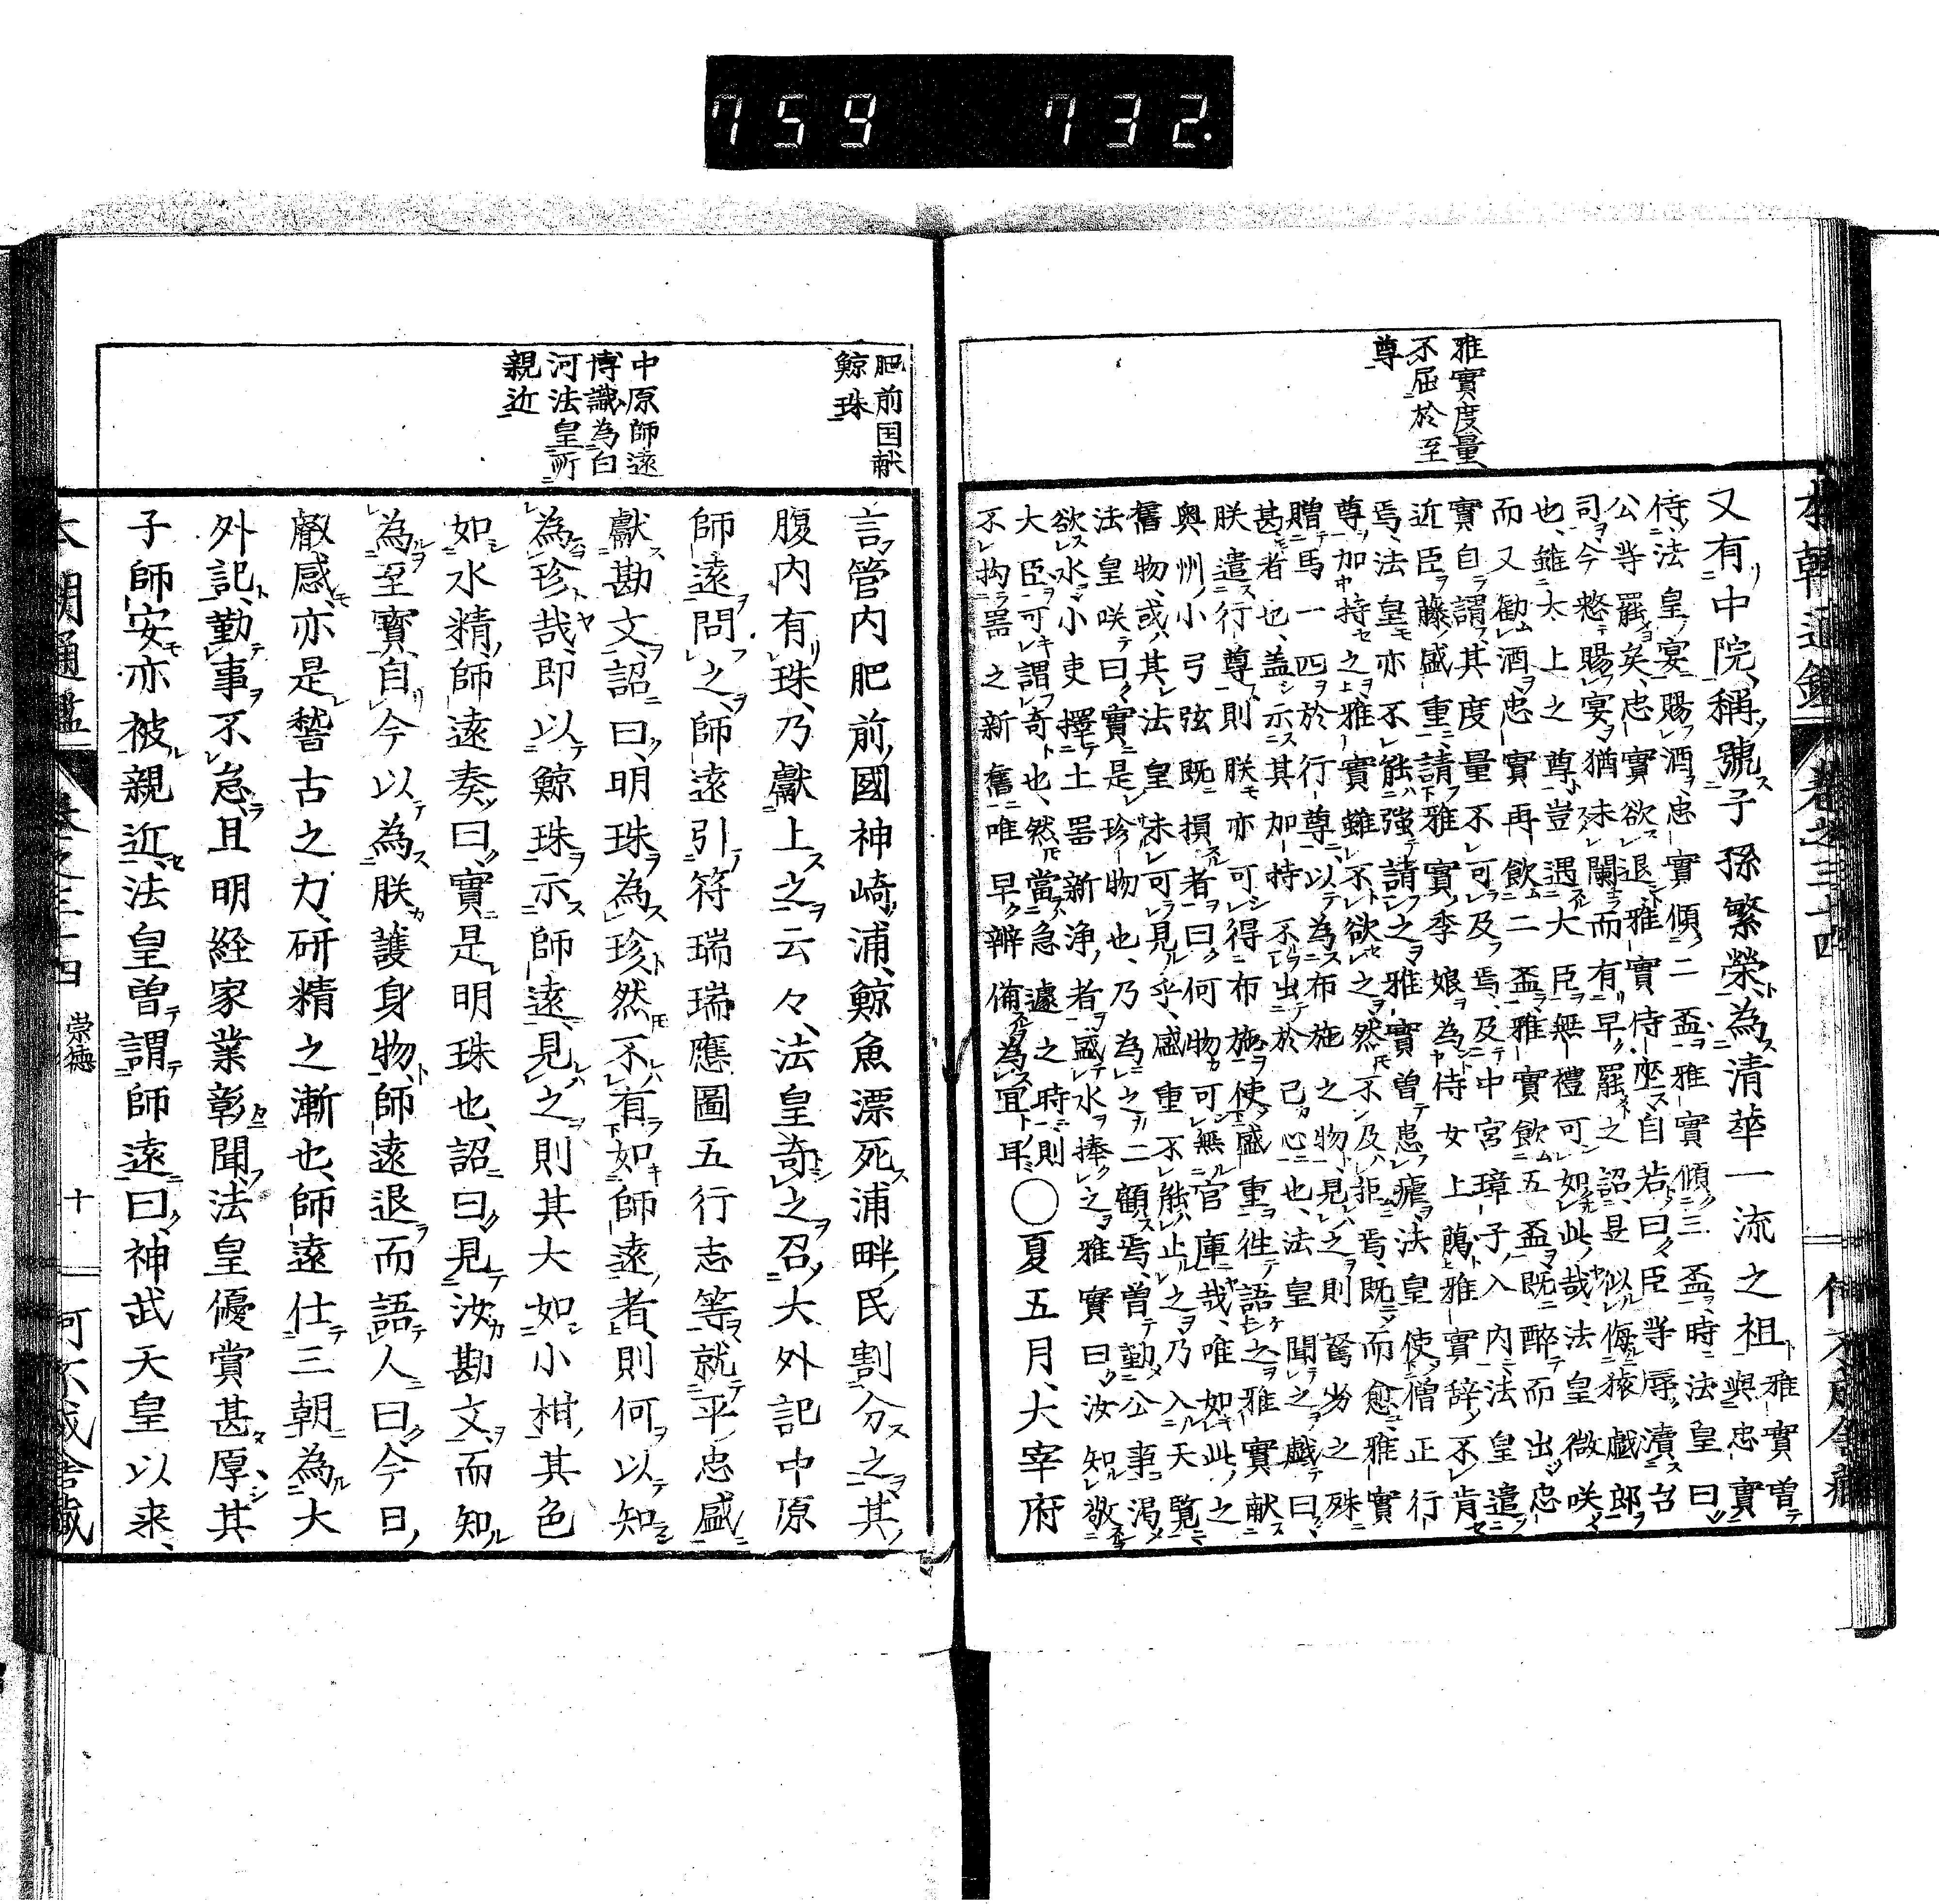 759 732.
雅實度量
不屈於至
尊
又有中院稱號子孫繁榮為清華一流之祖雅實曽
與忠實
侍法皇宴賜酒忠實傾二盃雅實傾三盃時法皇曰
公等羅矣忠實欲退雅實侍座自若曰臣等辱瀆召
司今憗賜宴猶未闌而有早罷之詔是以侮旅戯郎
也雖太上之尊豈遇大臣無禮可如此哉法皇微咲
而又勧酒忠實再飲二盃雅實飲五盃既醉而出忠
實自謂其度量不可及焉及中宮璋子入内法皇遣
近臣藤盛重請雅實季娘為侍女上﨟雅實辞不肯
焉法皇亦不能強請之雅實曽患瘧法皇使僧正行
尊加持之雅實雖不欲之然不及拒焉既而愈雅實
贈馬一匹於行尊以為布施之物見之則駑劣之殊
甚者也盖示其加持不出於己心也法皇聞之戯曰
朕遣行尊則朕亦可得布施使盛重徃語之雅實献
奥州小弓弦既損者曰何物可無官庫哉唯如此之
舊物或其法皇未可見乎盛重不能止之乃入天覧
法皇咲曰實是珍物也乃為之二顧焉曽勤公事渇
欲水小吏擇土噐新浄者盛水捧之雅實曰汝知敬
大臣可謂奇也然當急遽之時則
不拘噐之新舊唯早辨備為宜耳○夏五月大宰府
肥前国献
鯨珠
中原師遠
博識為白
河法皇所
親近
言管内肥前國神崎浦鯨魚漂死浦畔民割分之其
腹内有珠乃獻上之云々法皇奇之召大外記中原
師遠問之師遠引符瑞瑞應圖五行志等就平忠盛
獻勘文詔曰明珠為珍然不有如師遠者則何以知
為珍哉即以鯨珠示師遠見之則其大如小柑其色
如水精師遠奏曰實是明珠也詔曰見汝勘文而知
為至寳自今以為朕護身物師遠退而語人曰今日
叡感亦是𥡴古之力研精之漸也師遠仕三朝為大
外記勤事不怠且明経家業彰聞法皇優賞甚厚其
子師安亦被親近法皇曽謂師遠曰神武天皇以来
崇徳
十